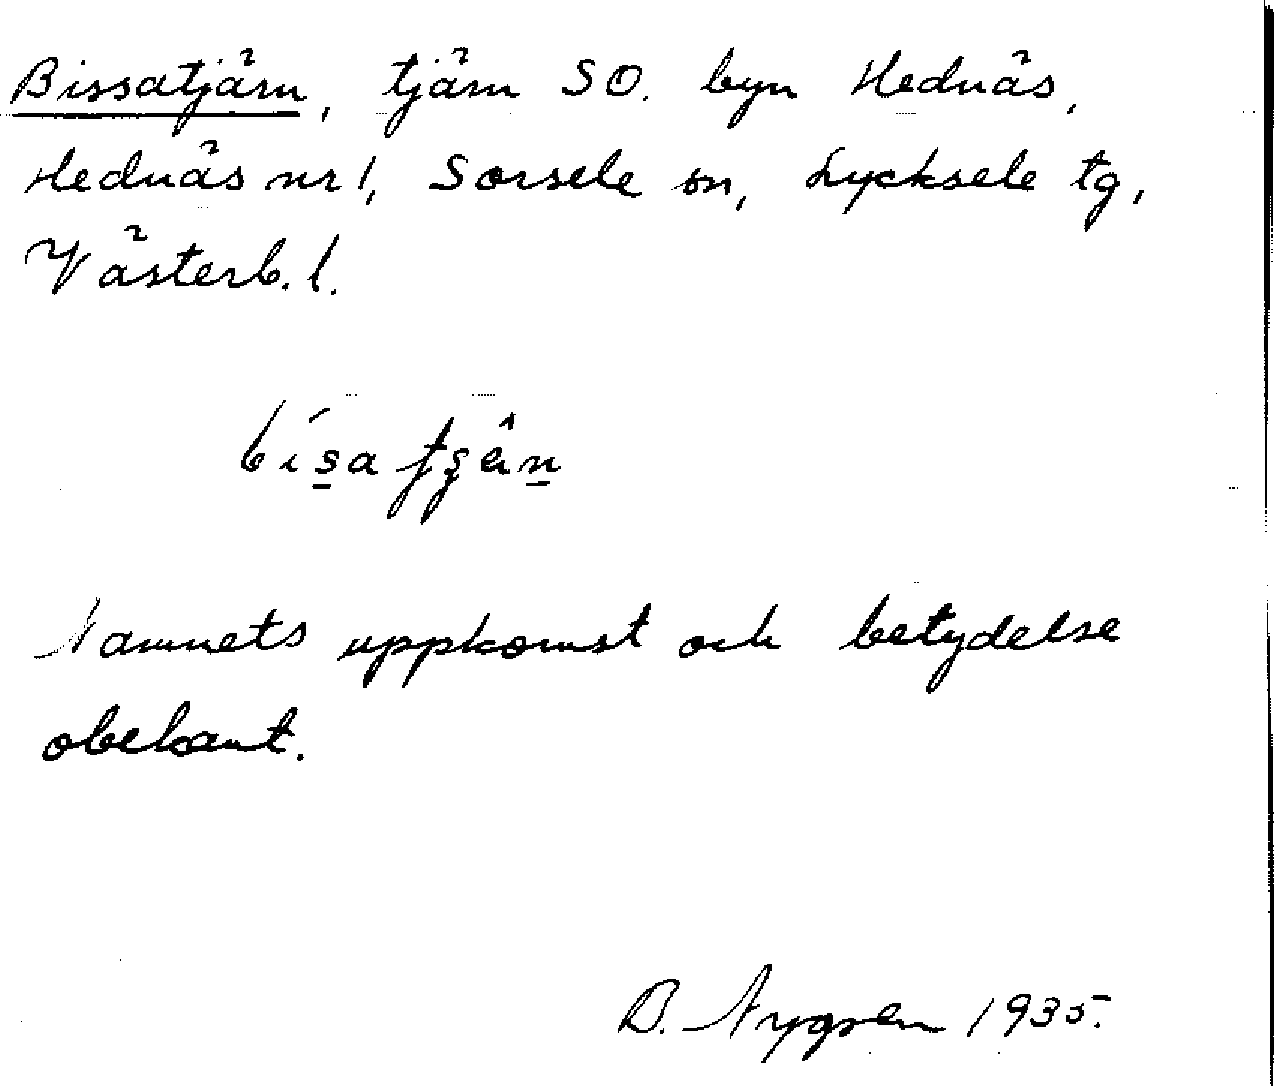 Bissatjärn, tjärn SO. byn Hednäs,
Hednäs nr 1, Sorsele sn, Lycksele tg,
Västerb. l.
Namnets uppkomst och betydelse
obekant.
B. Nygren 1935.